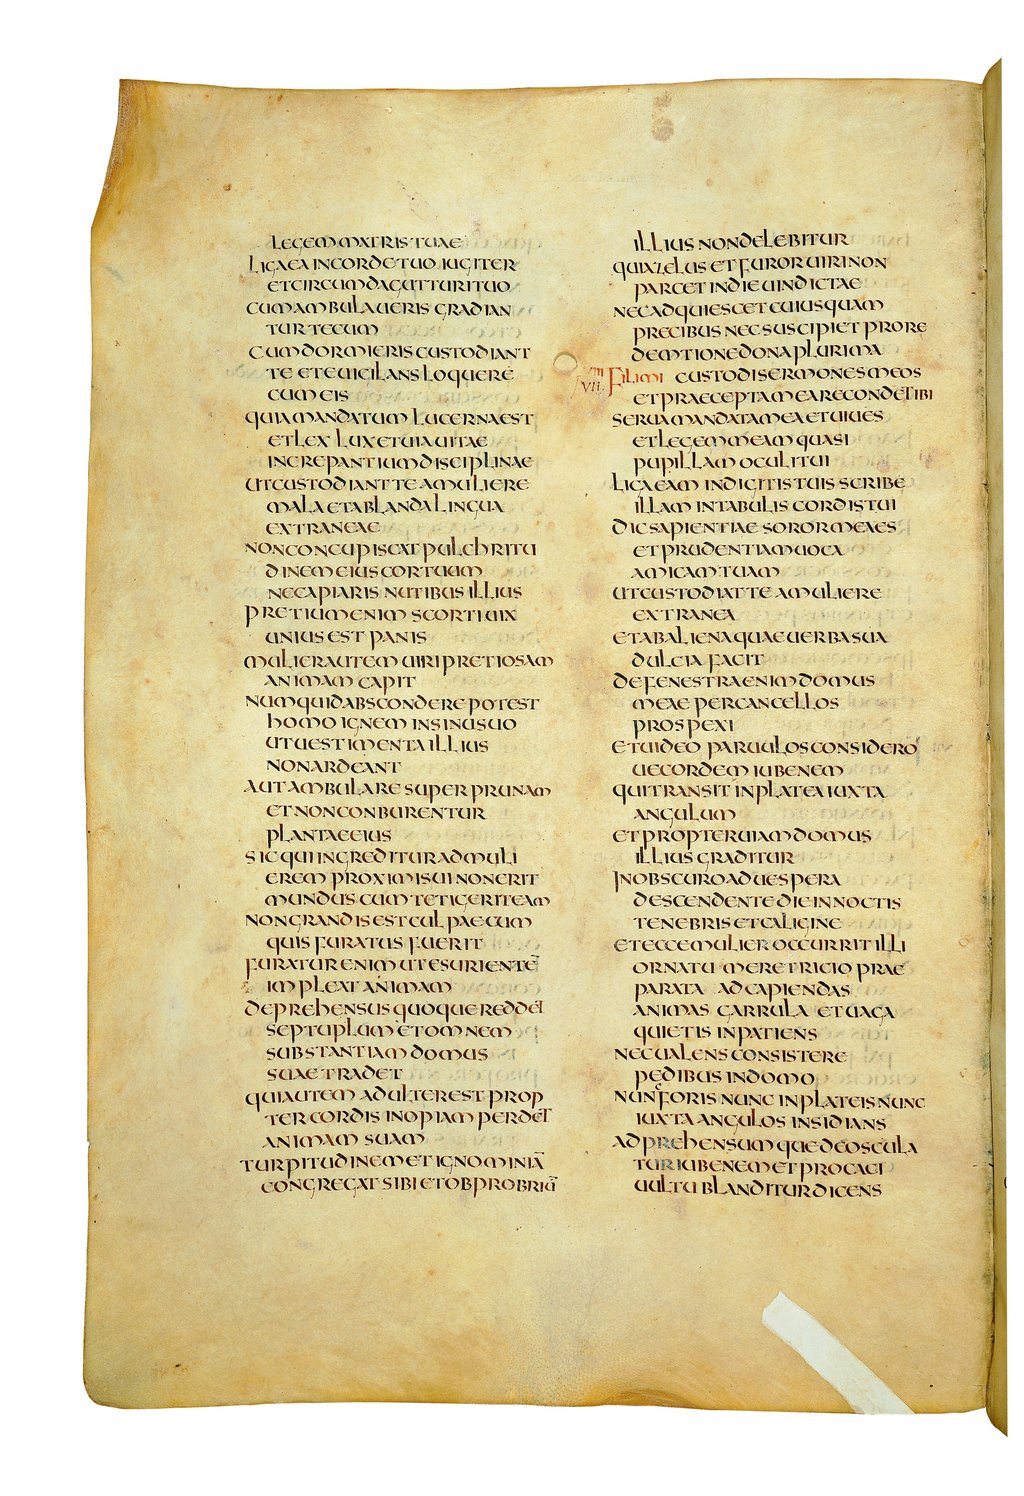 LEGEM MATRIS TUAE
LIGA EA IN CORDE TUO IUGITER
ET CIRCUMDA GUTTURI TUO
CUM AMBULAUERIS GRADIAN
TUR TECUM
CUM DORMIERIS CUSTODIANT
TE ET EUIGILANS LOQUERE
CUM EIS
QUIA MANDATUM LUCERNA EST
ET LEX LUX ET UIA UITAE
INCREPANTIUM DISCIPLINAE
UT CUSTODIANT TE A MULIERE
MALA ET A BLANDA LINGUA
EXTRANEAE
NON CONCUPISCAT PULCHRITU
DINEM EIUS COR TUUM
NEC CAPIARIS NUTIBUS ILLIUS
PRETIUM ENIM SCORTI UIX
UNIUS EST PANIS
MULIER AUTEM UIRI PRETIOSAM
ANIMAM CAPIT
NUMQUID ABSCONDERE POTEST
HOMO IGNEM IN SINU SUO
UT UESTIMENTA ILLIUS
NON ARDEANT
AUT AMBULARE SUPER PRUNAM
ET NON CONBURENTUR
PLANTAE EIUS
SIC QUI INGREDITUR AD MULI
EREM PROXIMI SUI NON ERIT
MUNDUS CUM TETIGERIT EAM
NON GRANDIS EST CULPAE CUM
QUIS FURATUS FUERIT
FURATUR ENIM UT ESURIENTĒ
IMPLEAT ANIMAM
DEPREHENSUS QUOQUE REDDET
SEPTUPLUM ET OMNEM
SUBSTANTIAM DOMUS
SUAE TRADET
QUI AUTEM ADULTER EST PROP
TER CORDIS INOPIAM PERDET
ANIMAM SUAM
TURPITUDINEM ET IGNOMINIĀ
CONGREGAT SIBI ET OBPROBRIŪ
ILLIUS NON DELEBITUR
QUIA ZELUS ET FUROR UIRI NON
PARCET IN DIE UINDICTAE
NEC ADQUIESCET CUIUSQUAM
PRECIBUS NEC SUSCIPIET PRO RE
DEMTIONE DONA PLURIMA
VII FILI MI CUSTODI SERMONES MEOS
ET PRAECEPTA MEA RECONDE TIBI
SERUA MANDATA MEA ET UIUES
ET LEGEM MEAM QUASI
PUPILLAM OCULI TUI
LIGA EAM IN DIGITIS TUIS SCRIBE
ILLAM IN TABULIS CORDIS TUI
DIC SAPIENTIAE SOROR MEA ES
ET PRUDENTIAM UOCA
AMICAM TUAM
UT CUSTODIAT TE A MULIERE
EXTRANEA
ET AB ALIENA QUAE UERBA SUA
DULCIA FACIT
DE FENESTRA ENIM DOMUS
MEAE PER CANCELLOS
PROSPEXI
ET UIDEO PARUULOS CONSIDERO
UECORDEM IUBENEM
QUI TRANSIT IN PLATEA IUXTA
ANGULUM
ET PROPTER UIAM DOMUS
ILLIUS GRADITUR
IN OBSCURO ADUESPERA
DESCENDENTE DIE IN NOCTIS
TENEBRIS ET CALIGINE
ET ECCE MULIER OCCURRIT ILLI
ORNATU MERETRICIO PRAE
PARATA AD CAPIENDAS
ANIMAS GARRULA ET UAGA
QUIETIS INPATIENS
NEC UALENS CONSISTERE
PEDIBUS IN DOMO
NUNC FORIS NUNC IN PLATEIS NUNC
IUXTA ANGULOS INSIDIANS
ADPREHENSUMQUE DEOSCULA
TUR IUBENEM ET PROCACI
UULTU BLANDITUR DICENS